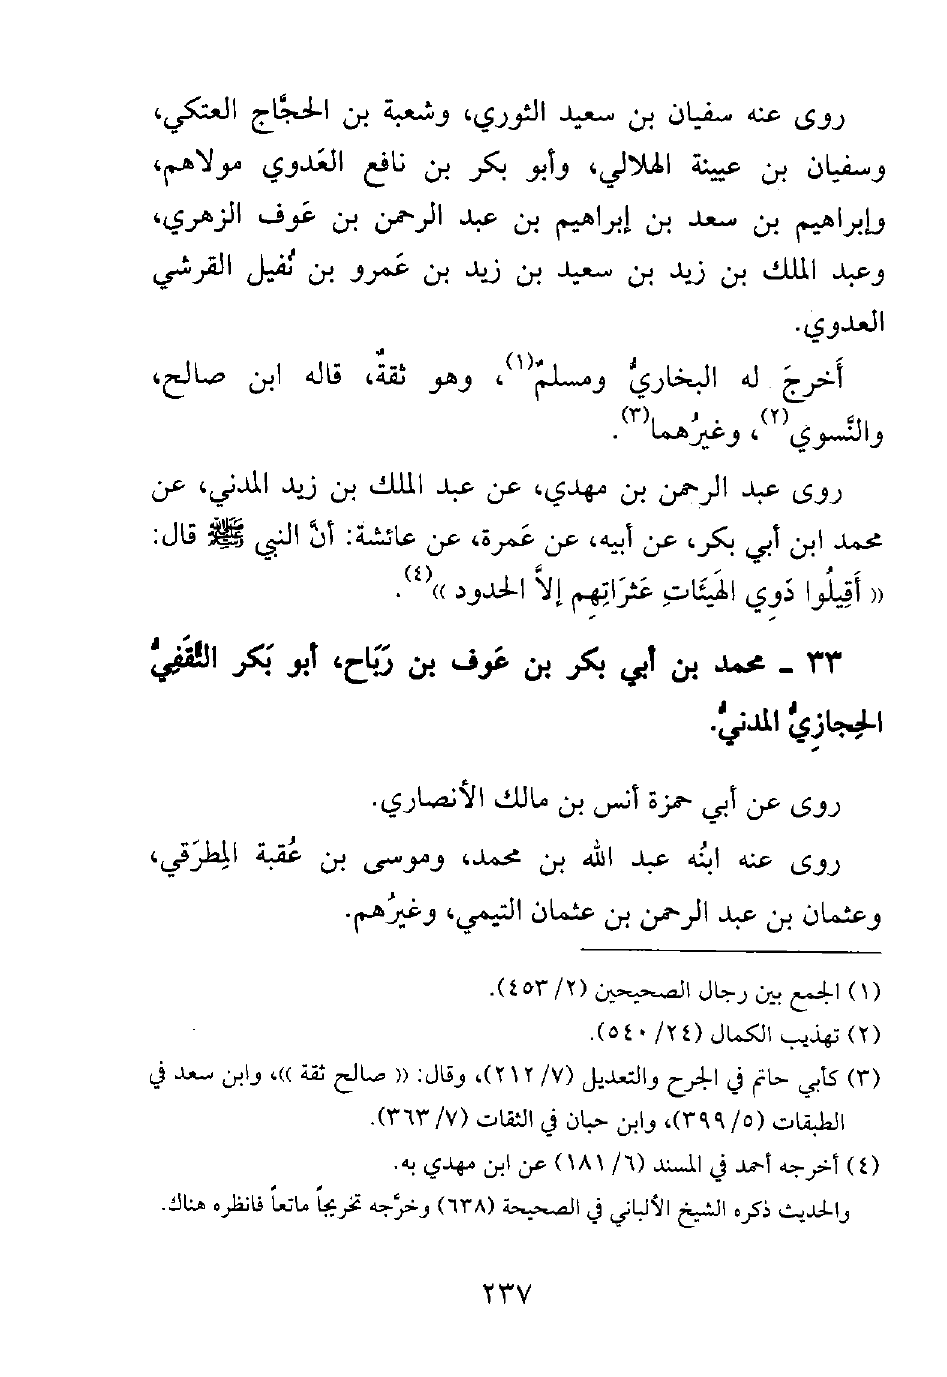 روى عنه سفيان بن سعيد الثوري، وشعبة بن الحجَّاج العتكي،
وسفيان بن عيينة الهلالي، وأبو بكر بن نافع العَدوي مولاهم،
وإبراهيم بن سعد بن إبراهيم بن عبد الرحمن بن عَوف الزهري،
وعبد الملك بن زيد بن سعيد بن زيد بن عَمرو بن نُفيل القرشي
العدوي.
أَخرجَ له البخاريُّ ومسلمٌ(١)، وهو ثقةٌ، قاله ابن صالح،
والنَّسوي(٢)، وغيرُهما(٣).
روى عبد الرحمن بن مهدي، عن عبد الملك بن زيد المدني، عن
محمد ابن أبي بكر، عن أبيه، عن عَمرة، عن عائشة: أنَّ النبي ﷺ قال:
« أَقِيلُوا ذَوِي الهَيئَاتِ عَثرَاتِهِم إلاَّ الحدود »(٤).
٣٣ ـ محمد بن أبي بكر بن عَوف بن رَبَاح، أبو بَكر الثَّقَفِيُّ
الحِجازِيُّ المدنيُّ.
روى عن أبي حمزة أنس بن مالك الأنصاري.
روى عنه ابنُه عبد الله بن محمد، وموسى بن عُقبة المِطرَقي،
وعثمان بن عبد الرحمن بن عثمان التيمي، وغيرُهم.
(١) الجمع بين رجال الصحيحين (٢/ ٤٥٣).
(٢) تهذيب الكمال (٢٤/ ٥٤٠).
(٣) كأبي حاتم في الجرح والتعديل (٧/ ٢١٢)، وقال: « صالح ثقة »، وابن سعد في
الطبقات (٥/ ٣٩٩)، وابن حبان في الثقات (٧/ ٣٦٣).
(٤) أخرجه أحمد في المسند (٦/ ١٨١) عن ابن مهدي به.
والحديث ذكره الشيخ الألباني في الصحيحة (٦٣٨) وخرَّجه تخريجاً ماتعاً فانظره هناك.
٢٣٧